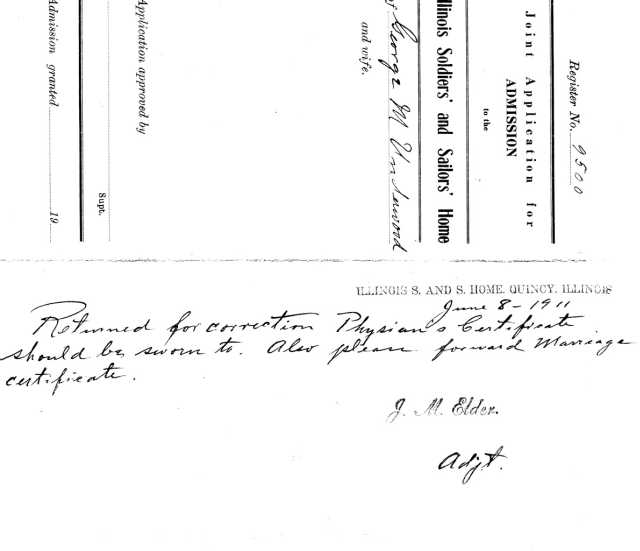 Register No. 9500
Joint Application for
ADMISSION
to the
Illinois Soldiers' and Sailors' Home
of George M Underwood
and wife.
Application approved by
Supt.
Admission granted 19
ILLINOIS S. AND S. HOME. QUINCY, ILLINOIS
June 8 - 1911
Returned for correction Physian's Certificate
should be sworn to. Also please forward Marriage
certificate.
J. M. Elder.
Adjt.